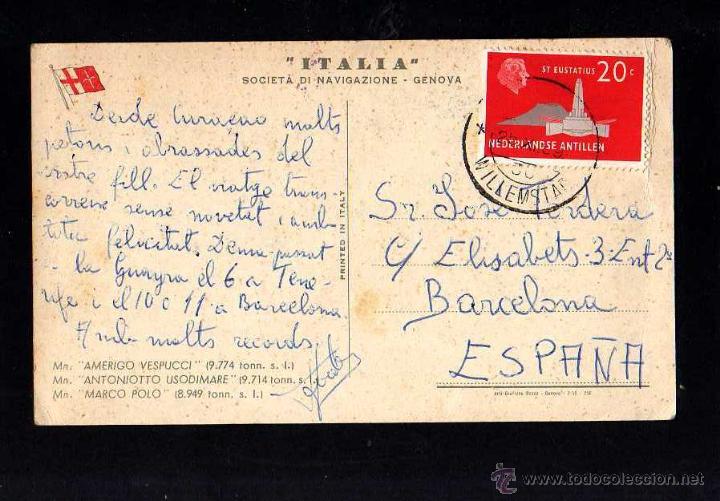 "ITALIA"
SOCIETÀ DI NAVIGAZIONE - GENOVA
ST EUSTATIUS 20 c
NEDERLANDSE ANTILLEN
WILLEMSTAD
Desde Curaçao molts
petons i abrassades del
vostre fill. El viatge trans-
correne sense novetat i amb
tota felicitat. Demà passat
la Guayra el 6 a Tene-
rife i el 10 o 11 a Barcelona.
Amb molts records.
PRINTED IN ITALY
Sr. Jose Verdera
C/ Elisabets-3-Ent 2ª
Barcelona
ESPAÑA
Mn. "AMERIGO VESPUCCI" (9.774 tonn. s. l.)
Mn. "ANTONIOTTO USODIMARE" (9.714 tonn. s. l.)
Mn. "MARCO POLO" (8.949 tonn. s. l.)
todocoleccion
www.todocoleccion.net